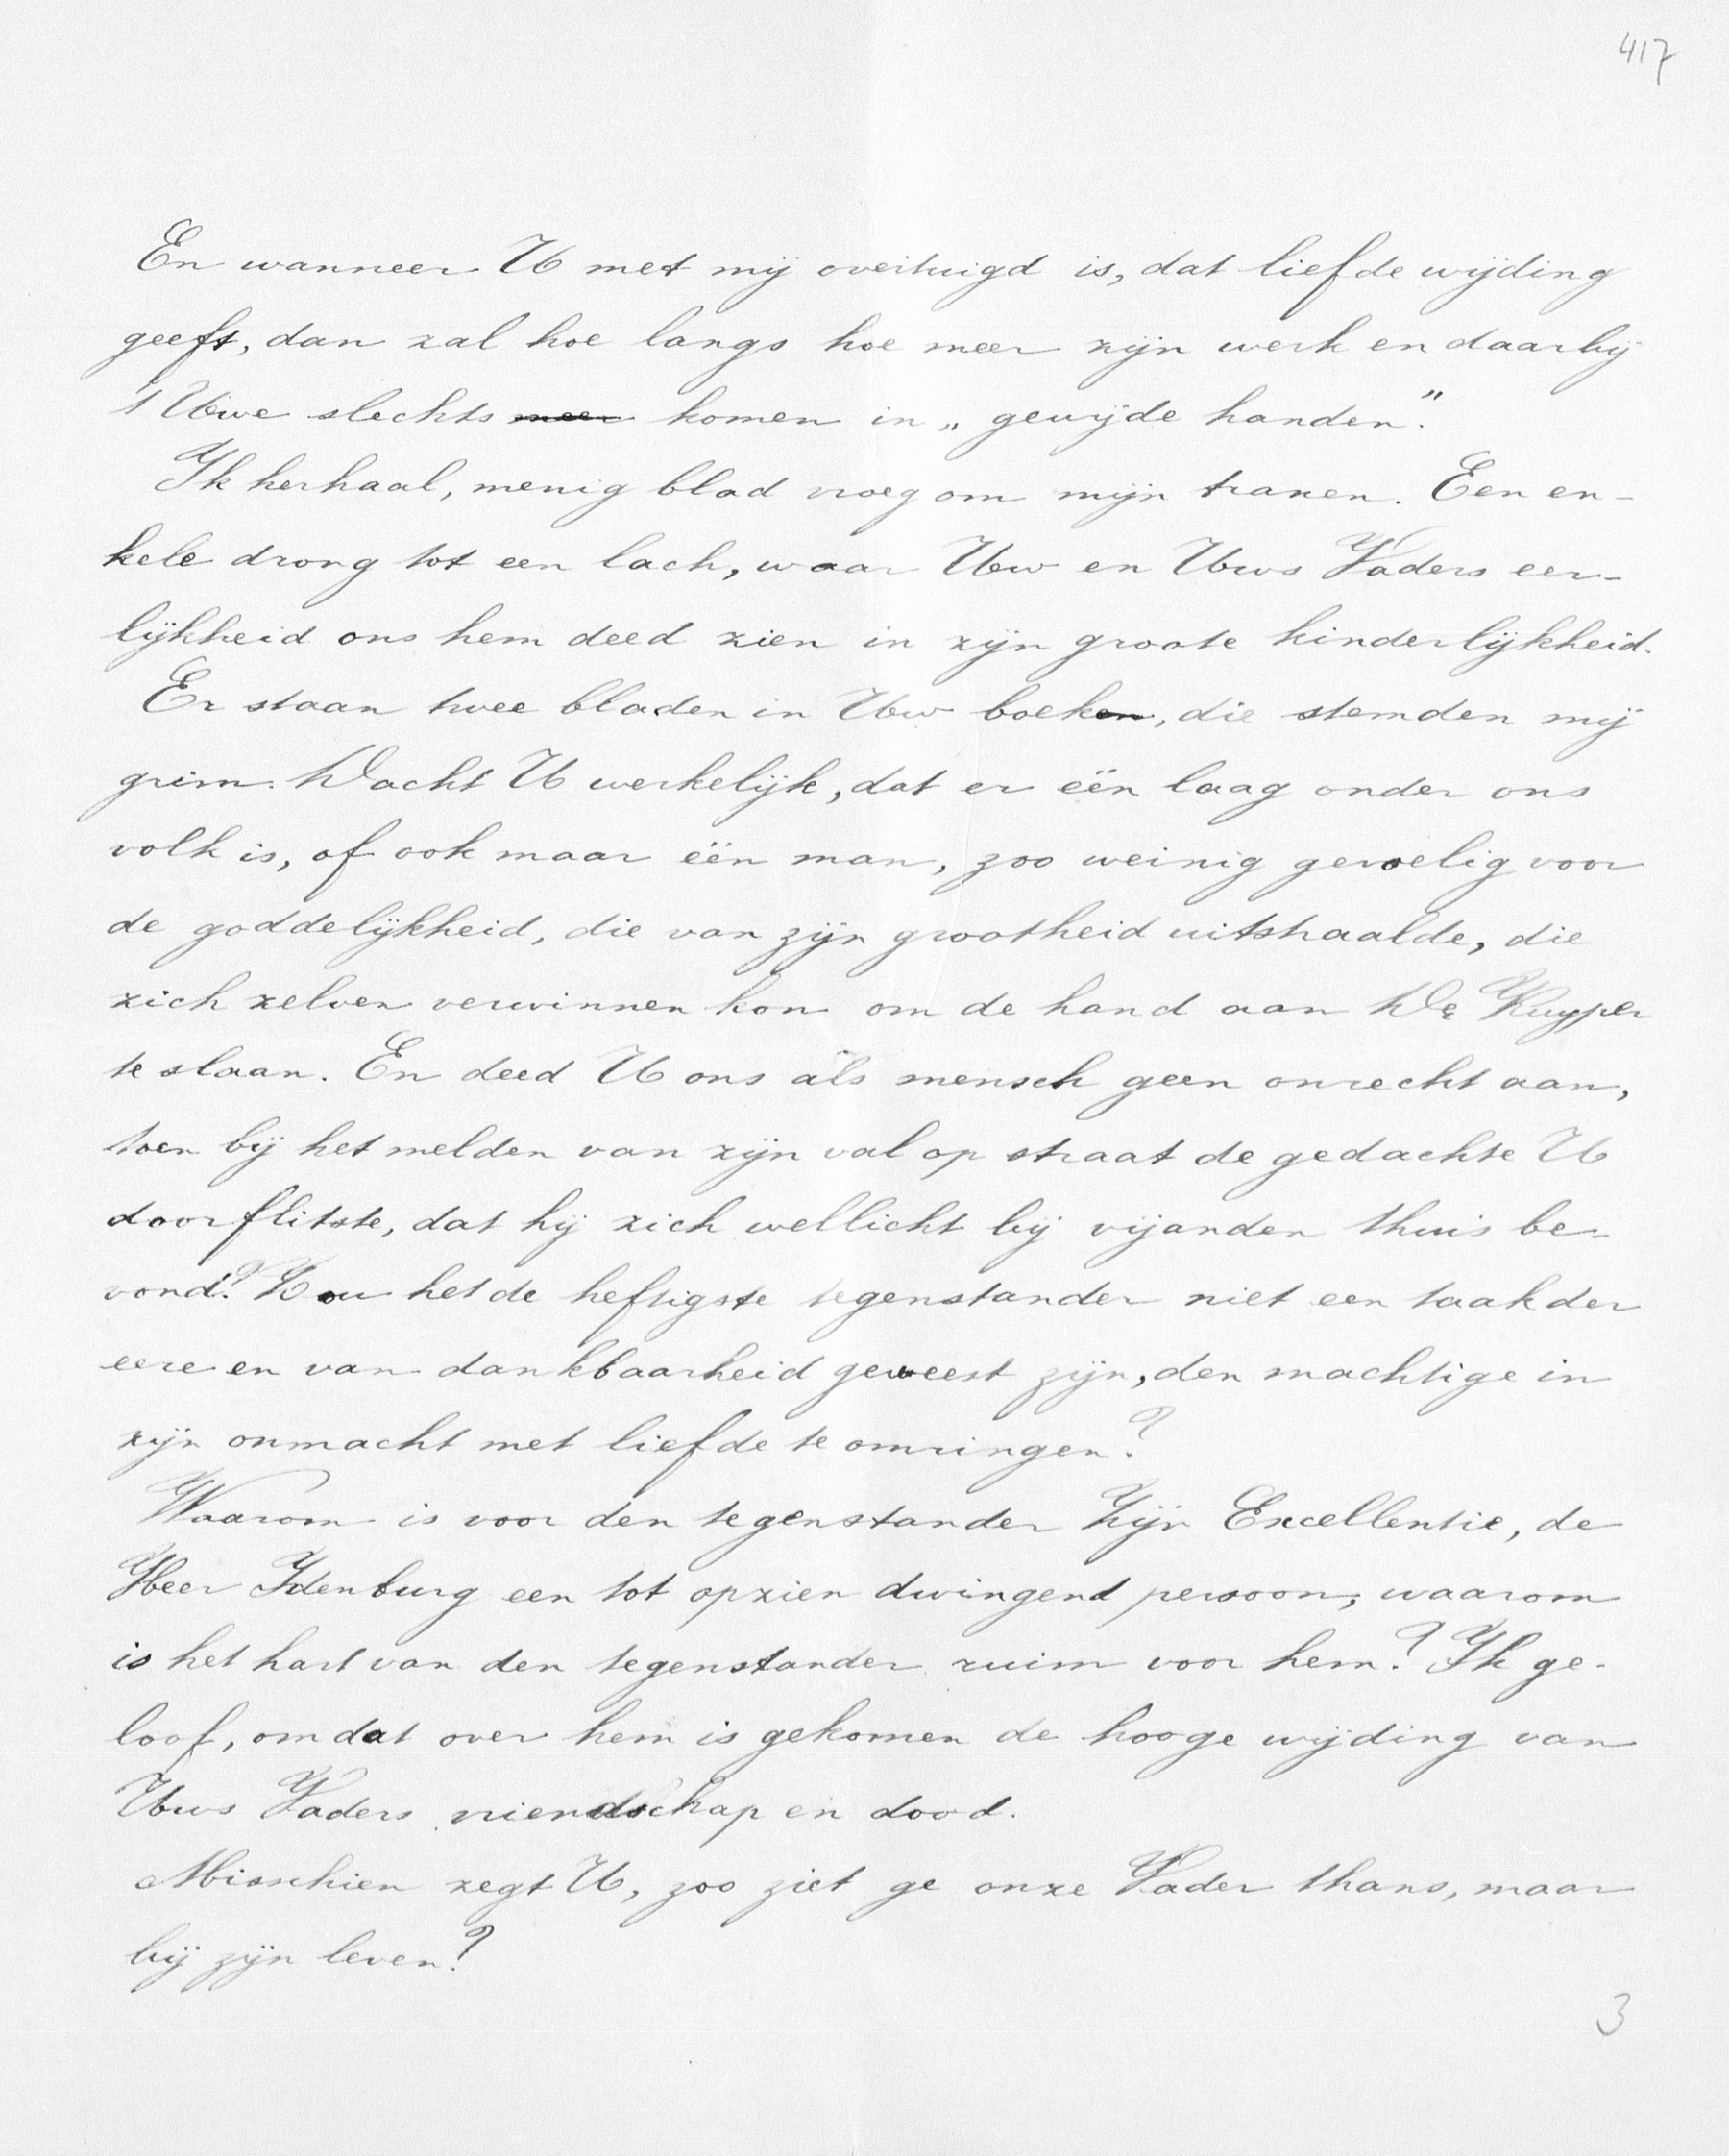 417
En wanneer U met mij overtuigd is, dat liefde wijding
geeft, dan zal hoe langs hoe meer zijn werk en daarbij
't Uwe slechts meer komen in „gewijde handen".
Ik herhaal, menig blad vroeg om mijn tranen. Een en-
kele drong tot een lach, waar Uw en Uws Vaders eer-
lijkheid ons hem deed zien in zijn groote kinderlijkheid.
Er staan twee bladen in Uw boeken, die stemden mij
grim. Dacht U werkelijk, dat er één laag onder ons
volk is, of ook maar één man, zoo weinig gevoelig voor
de goddelijkheid, die van zijn grootheid uitstraalde, die
zich zelven verwinnen kon om de hand aan Dr Kuyper
te slaan. En deed U ons als mensch geen onrecht aan,
toen bij het melden van zijn val op straat de gedachte U
doorflitste, dat hij zich wellicht bij vijanden thuis be-
vond? Zou het de heftigste tegenstander niet een taak der
eere en van dankbaarheid geweest zijn, den machtige in
zijn onmacht met liefde te omringen?
Waarom is voor den tegenstander Zijn Excellentie, de
Heer Idenburg een tot opzien dwingend persoon, waarom
is het hart van den tegenstander ruim voor hem? Ik ge-
loof, omdat over hem is gekomen de hooge wijding van
Uws Vaders vriendschap en dood.
Misschien zegt U, zoo ziet ge onze Vader thans, maar
bij zijn leven?
3